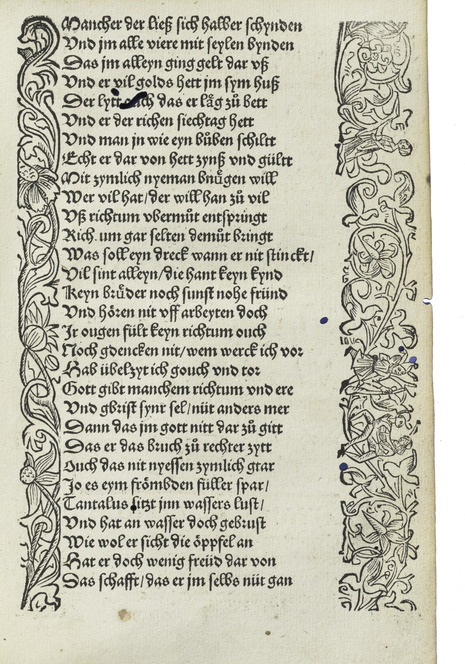 Mancher der ließ sich halber schynden
Vnd jm alle viere mit seylen bynden
Das jm alleyn ging gelt dar vß
Vnd er vil golds hett jm sym huß
Der lytt das er låg zů bett
Vnd er der richen siechtag hett
Vnd man jn wie eyn bůben schiltt
Echt er dar von hett zynß vnd gültt
Mit zymlich nyeman bnuͤgen will
Wer vil hat/ der will han zů vil
Vß richtum vbermůt entspringt
Rich um gar selten demůt bringt
Was soll eyn dreck wann er nit stinckt/
Vil sint alleyn/ die hant keyn kynd
Keyn bruͤder noch sunst nohe fründ
Vnd hören nit vff arbeyten doch
Jr ougen fült keyn richtum ouch
Noch gdencken nit/ wem werck ich vor
Hab übelzyt ich gouch vnd tor
Gott gibt manchem richtum vnd ere
Vnd gbrist synr sel/ nüt anders mer
Dann das jm gott nitt dar zů gitt
Das er das bruch zů rechter zytt
Ouch das nit nyessen zymlich gtar
Jo es eym frömbden füller spar/
Tantalus sitzt jnn wassers lust/
Vnd hat an wasser doch gebrust
Wie wol er sicht die öppfel an
Hat er doch wenig freüd dar von
Das schafft/ das er jm selbs nüt gan